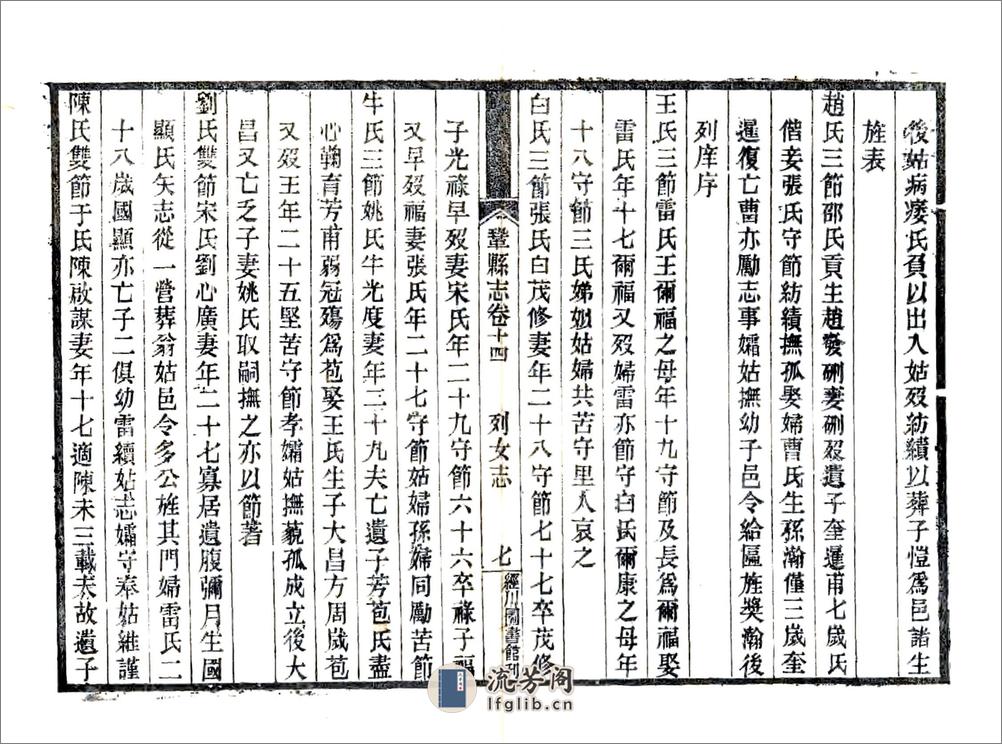 後姑病痿氏負以出入姑歿紡績以葬子愷爲邑諸生
旌表
趙氏三節邵氏貢生趙發硎妻硎歿遺子奎暹甫七歲氏
偕妾張氏守節紡績撫孤娶婦曹氏生孫瀚僅三歲奎
暹復亡曹亦勵志事孀姑撫幼子邑令給匾旌獎瀚後
列庠序
王氏三節雷氏王爾福之母年十九守節及長爲爾福娶
雷氏年十七爾福又歿婦雷亦節守白氏爾康之母年
十八守節三氏娣姒姑婦共苦守里人哀之
白氏三節張氏白茂修妻年二十八守節七十七卒茂修
子光祿早歿妻宋氏年二十九守節六十六卒祿子福
又早歿福妻張氏年二十七守節姑婦孫婦同勵苦節
牛氏三節姚氏牛光度妻年三十九夫亡遺子芳苞氏盡
心鞠育芳甫弱冠殤爲苞娶王氏生子大昌方周歲苞
又歿王年二十五堅苦守節孝孀姑撫藐孤成立後大
昌又亡乏子妻姚氏取嗣撫之亦以節著
劉氏雙節宋氏劉心廣妻年二十七寡居遺腹彌月生國
顯氏矢志從一營葬翁姑邑令多公旌其門婦雷氏二
十八歲國顯亦亡子二俱幼雷續姑志孀守奉姑維謹
陳氏雙節于氏陳啟謀妻年十七適陳未三載夫故遺子
鞏縣志卷十四 列女志 七 經川圖書館刊
流芳阁
lfglib.cn